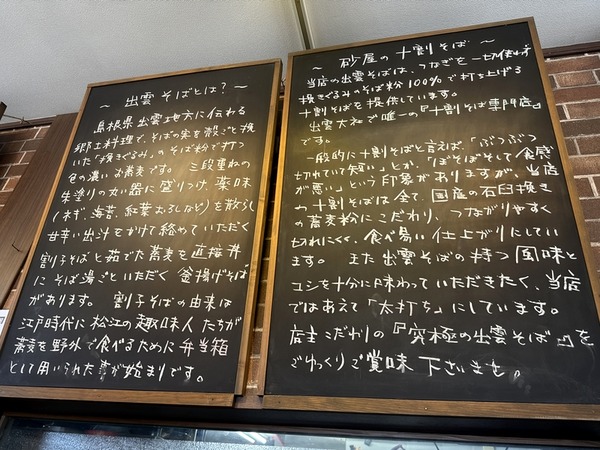 ～ 出雲そばとは？ ～
島根県出雲地方に伝わる
郷土料理で、そばの実を殻ごと挽
いた『挽きぐるみ』のそば粉で打つ
色の濃いお蕎麦です。 三段重ねの
朱塗りの丸い器に盛りつけ 薬味
(ネギ、海苔、紅葉おろしなど)を散らし
甘辛い出汁をかけて絡めていただく
割子そばと茹でた蕎麦を直接丼
にそば湯ごといただく 釜揚げそば
があります。 割子そばの由来は
江戸時代に松江の趣味人たちが
蕎麦を野外で食べるために弁当箱
として用いられた事が始まりです。
～ 砂屋の十割そば ～
当店の出雲そばは、つなぎを一切使わず
挽きぐるみのそば粉100%で打ち上げる
十割そばを提供しています。
出雲大社で唯一の『十割そば専門店』
です。
一般的に十割そばと言えば、『ぶつぶつ
切れていて短い』とか、『ぼそぼそして食感
が悪い』という印象がありますが、当店
の十割そばは全て、国産の石臼挽き
の蕎麦粉にこだわり、つながりやすく
切れにくく、食べ易い仕上がりにしてい
ます。 また出雲そばの持つ風味と
コシを十分に味わっていただきたく、当店
ではあえて「太打ち」にしています。
店主こだわりの『究極の出雲そば』を
ごゆっくりご賞味 下さいませ。